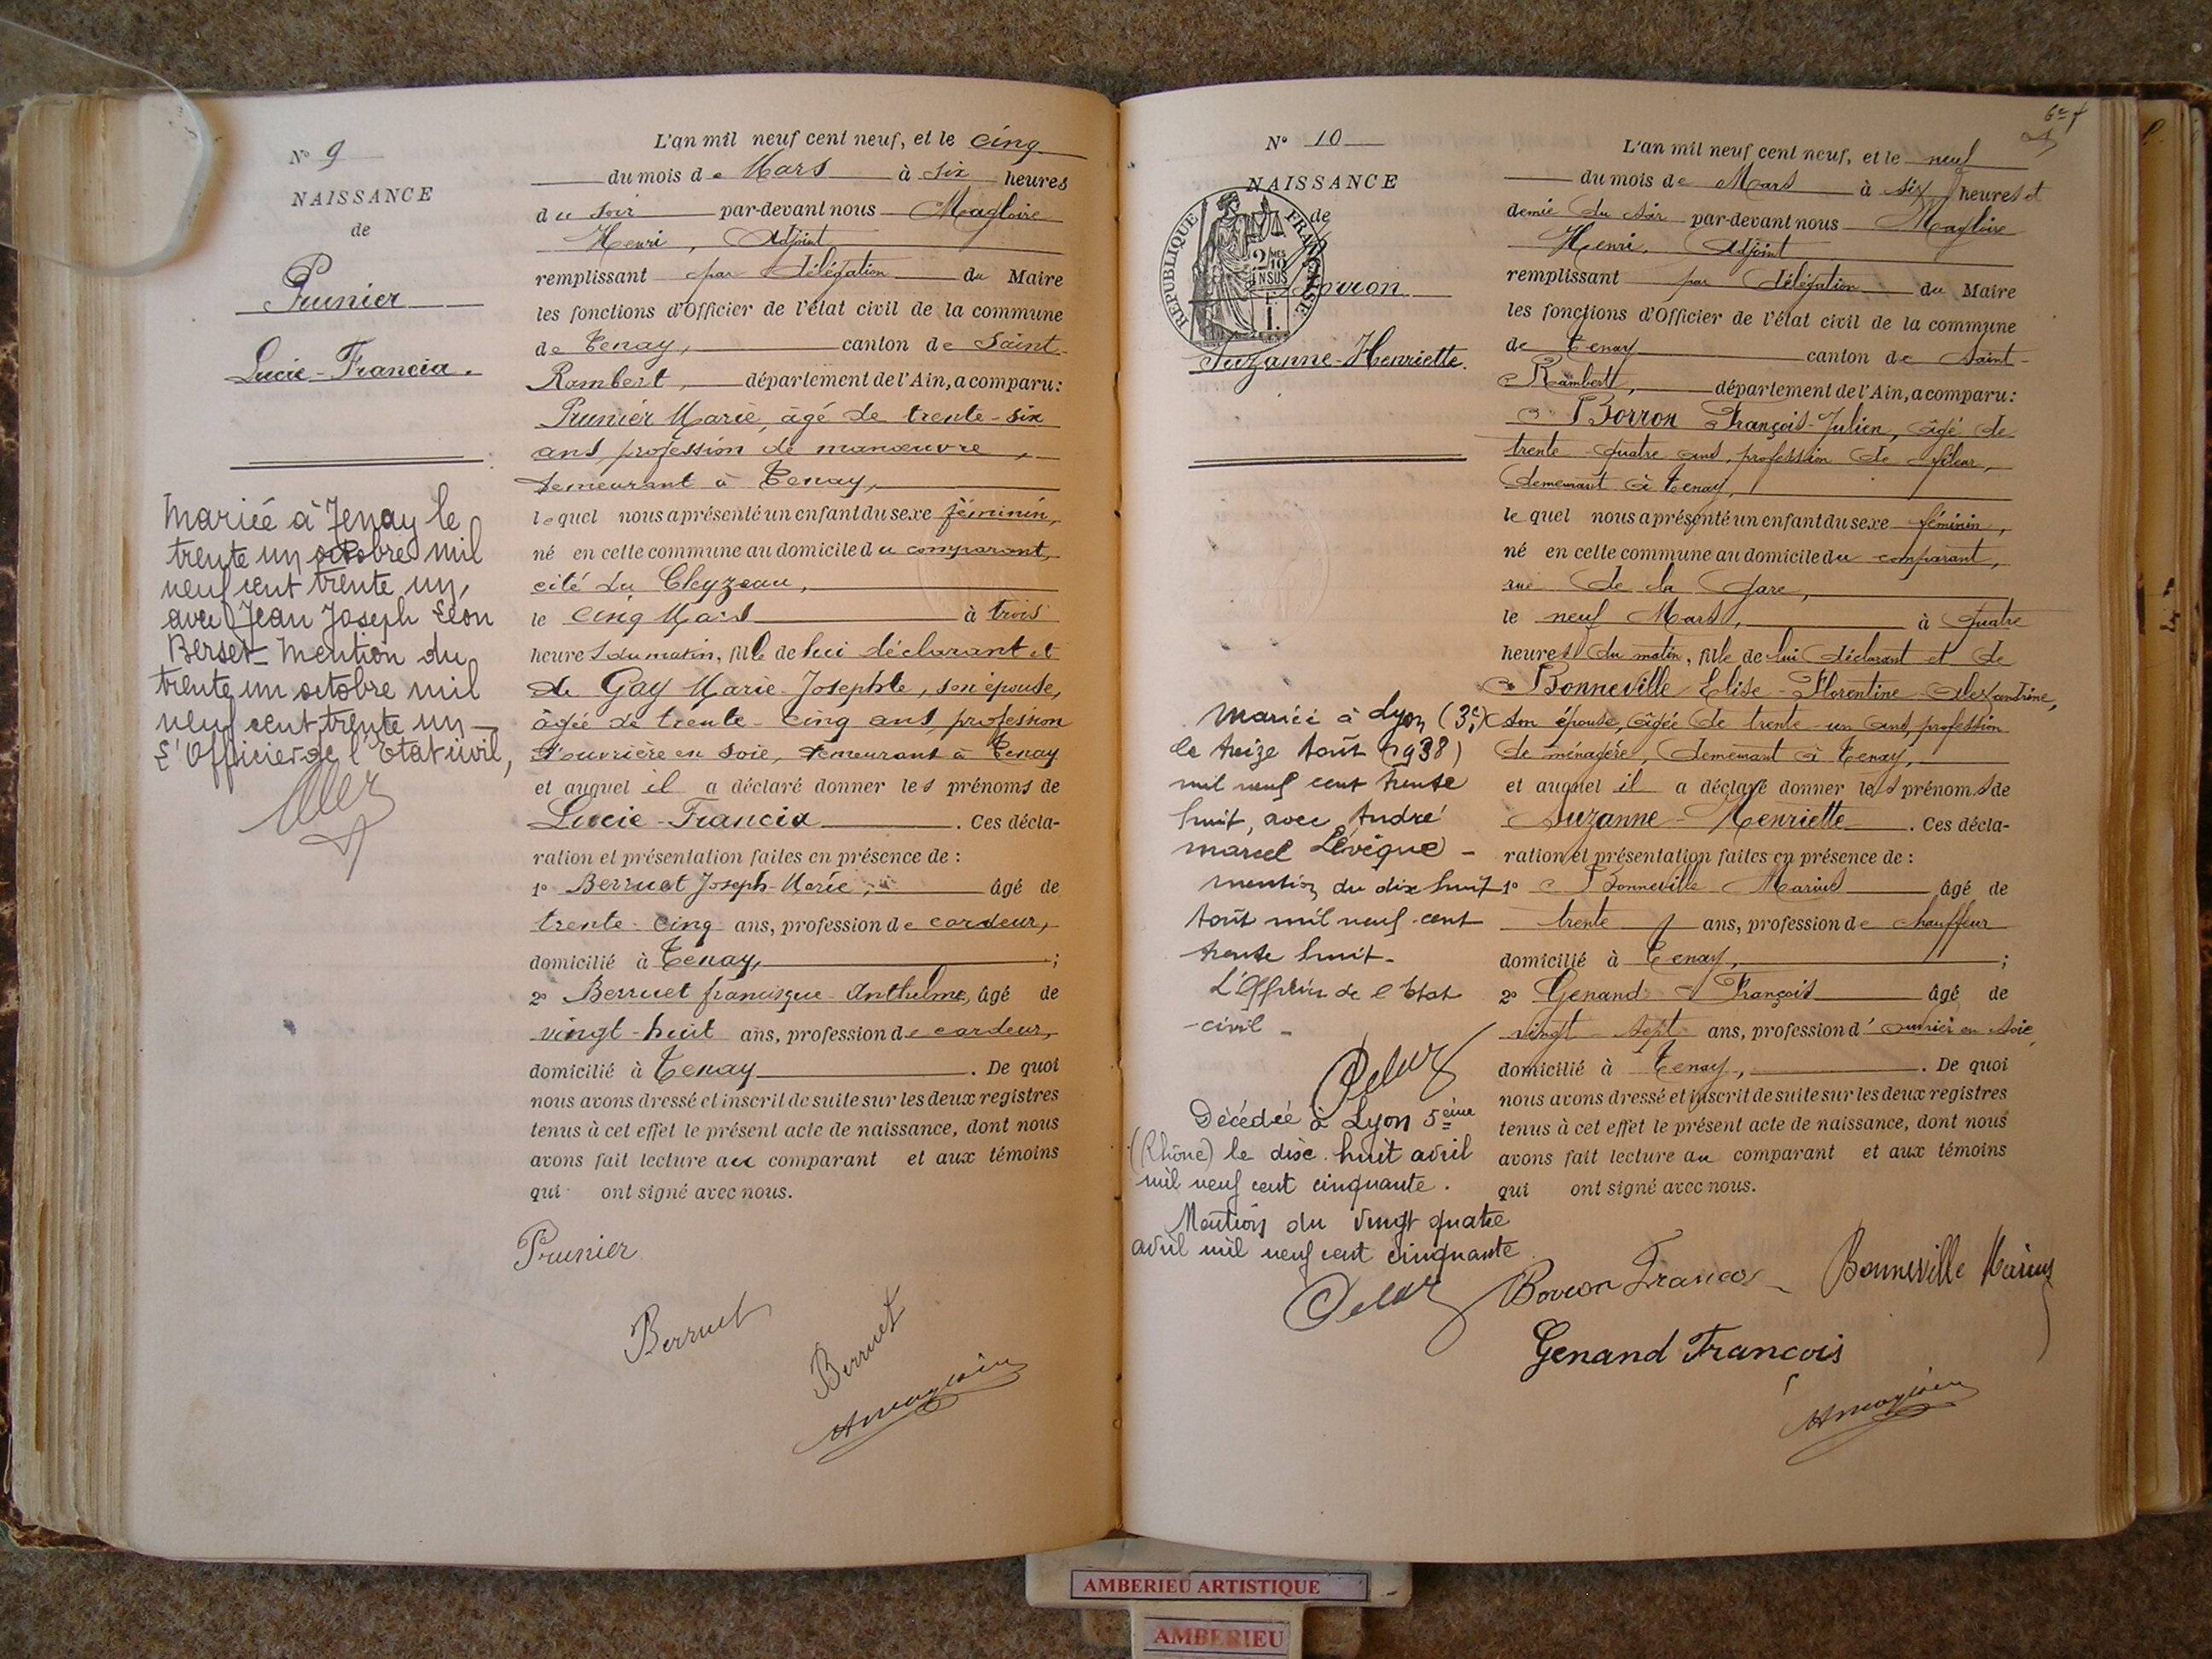 N° 9
NAISSANCE
de
Prunier
Lucie-Francia.
Mariée à Tenay le
trente un octobre mil
neuf cent trente un,
avec Jean Joseph Léon
Berset - Mention du
trente un octobre mil
neuf cent trente un -
L'Officier de l'Etat civil,
L'an mil neuf cent neuf, et le cinq
du mois de Mars à six heures
du soir par-devant nous Magloire
Henri, Adjoint
remplissant par délégation du Maire
les fonctions d'Officier de l'état civil de la commune
de Tenay, canton de Saint-
Rambert, département de l'Ain, a comparu:
Prunier Marie, âgé de trente-six
ans, profession de manœuvre,
demeurant à Tenay,
lequel nous a présenté un enfant du sexe féminin,
né en cette commune au domicile du comparant,
cité du Cleyzeau,
le cinq Mars à trois
heures du matin, fille de lui déclarant et
de Gay Marie-Josephte, son épouse,
âgée de trente-cinq ans, profession
d'ouvrière en soie, demeurant à Tenay
et auquel il a déclaré donner les prénoms de
Lucie-Francia. Ces décla-
ration et présentation faites en présence de :
1° Berruet Joseph-Marie, âgé de
trente-cinq ans, profession de cardeur,
domicilié à Tenay, ;
2° Berruet francisque-Anthelme, âgé de
vingt-huit ans, profession de cardeur,
domicilié à Tenay. De quoi
nous avons dressé et inscrit de suite sur les deux registres
tenus à cet effet le présent acte de naissance, dont nous
avons fait lecture au comparant et aux témoins
qui ont signé avec nous.
Prunier
Berruet
Berruet
HMagloire
N° 10
NAISSANCE
de
REPUBLIQUE FRANÇAISE
2/10 MES
EN SUS
1 F.
Borron
Suzanne-Henriette.
Mariée à Lyon (3e)
le treize Août (1938)
mil neuf cent trente
huit, avec André
Marcel Lévêque -
mention du dix huit
Août mil neuf cent
trente huit -
L'Officier de l'Etat
-civil -
Décédée à Lyon 5ème
(Rhône) le dix huit avril
mil neuf cent cinquante.
Mention du vingt quatre
avril mil neuf cent cinquante
L'an mil neuf cent neuf, et le neuf
du mois de Mars à six heures et
demie du soir par-devant nous Magloire
Henri, Adjoint
remplissant par délégation du Maire
les fonctions d'Officier de l'état civil de la commune
de Tenay canton de Saint-
Rambert, département de l'Ain, a comparu:
Borron François-Julien, âgé de
trente-quatre ans, profession de fileur,
demeurant à Tenay,
lequel nous a présenté un enfant du sexe féminin,
né en cette commune au domicile du comparant,
rue de la Gare,
le neuf Mars, à quatre
heures du matin, fille de lui déclarant et de
Bonneville Elise-Florentine-Alexandrine,
son épouse, âgée de trente-un ans, profession
de ménagère, demeurant à Tenay,
et auquel il a déclaré donner les prénoms de
Suzanne-Henriette. Ces décla-
ration et présentation faites en présence de :
1° Bonneville Marius âgé de
trente ans, profession de chauffeur
domicilié à Tenay, ;
2° Genand François âgé de
vingt-sept ans, profession d'ouvrier en soie,
domicilié à Tenay, . De quoi
nous avons dressé et inscrit de suite sur les deux registres
tenus à cet effet le présent acte de naissance, dont nous
avons fait lecture au comparant et aux témoins
qui ont signé avec nous.
Borron Francois Bonneville Marius
Genand François
HMagloire
AMBERIEU ARTISTIQUE
AMBERIEU